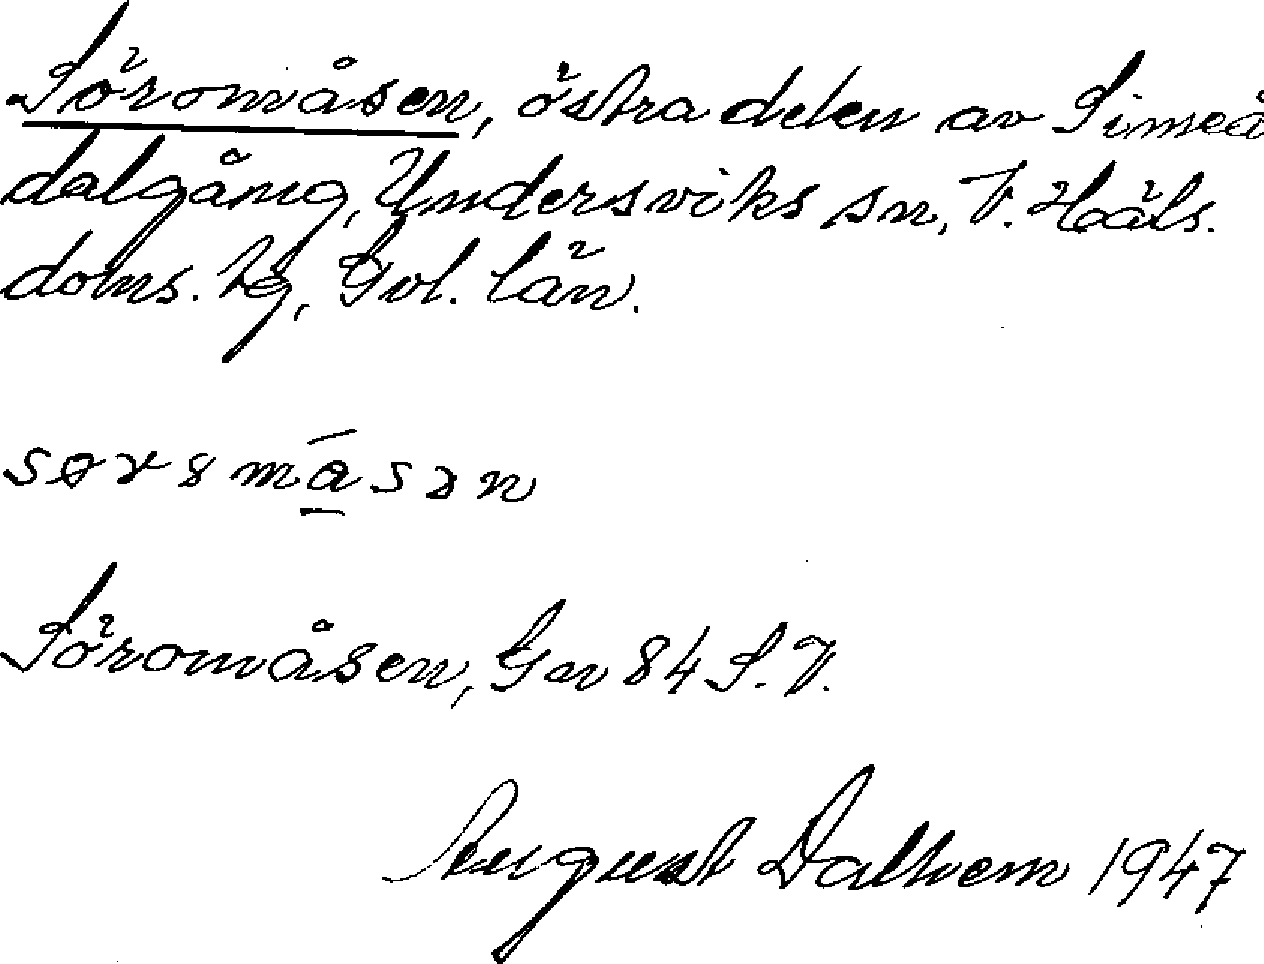 Söromåsen, östra delen av Simeå
dalgång, Undersviks sn, V. Häls.
doms. hg, Gvl. län.
sørømåsən
Söromåsen, Gv 84 S.V.
August Dalhem 1947